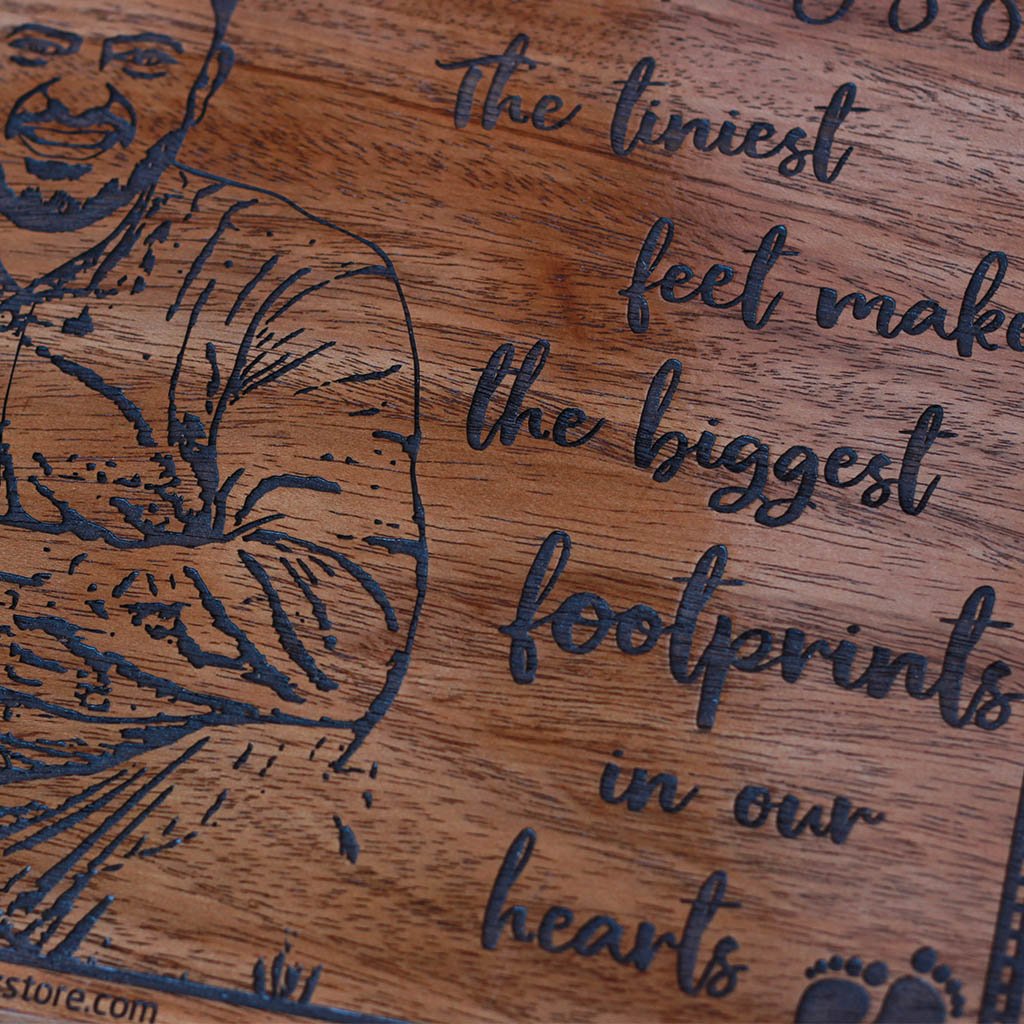 The tiniest
feet make
the biggest
footprints
in our
hearts
store.com